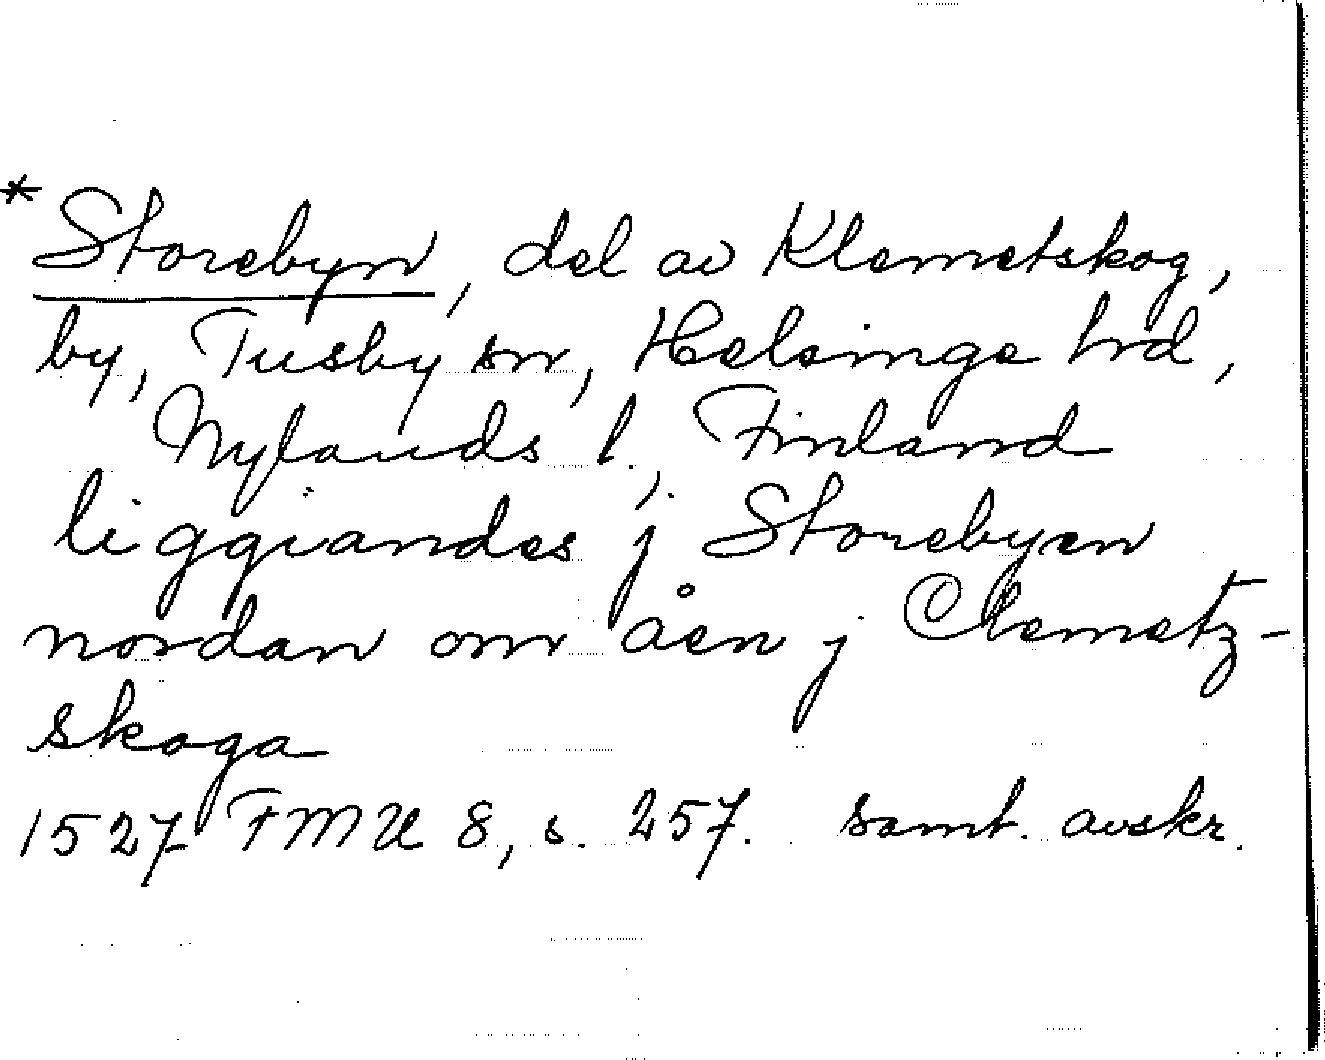 *Storebyn, del av Klemetskog,
by, Tusby sn, Helsinge hd,
Nylands l., Finland
liggiandes j Storebyen
nordan om åen j Clemetz-
skoga
1527 FMU 8, s. 257. samt. avskr.